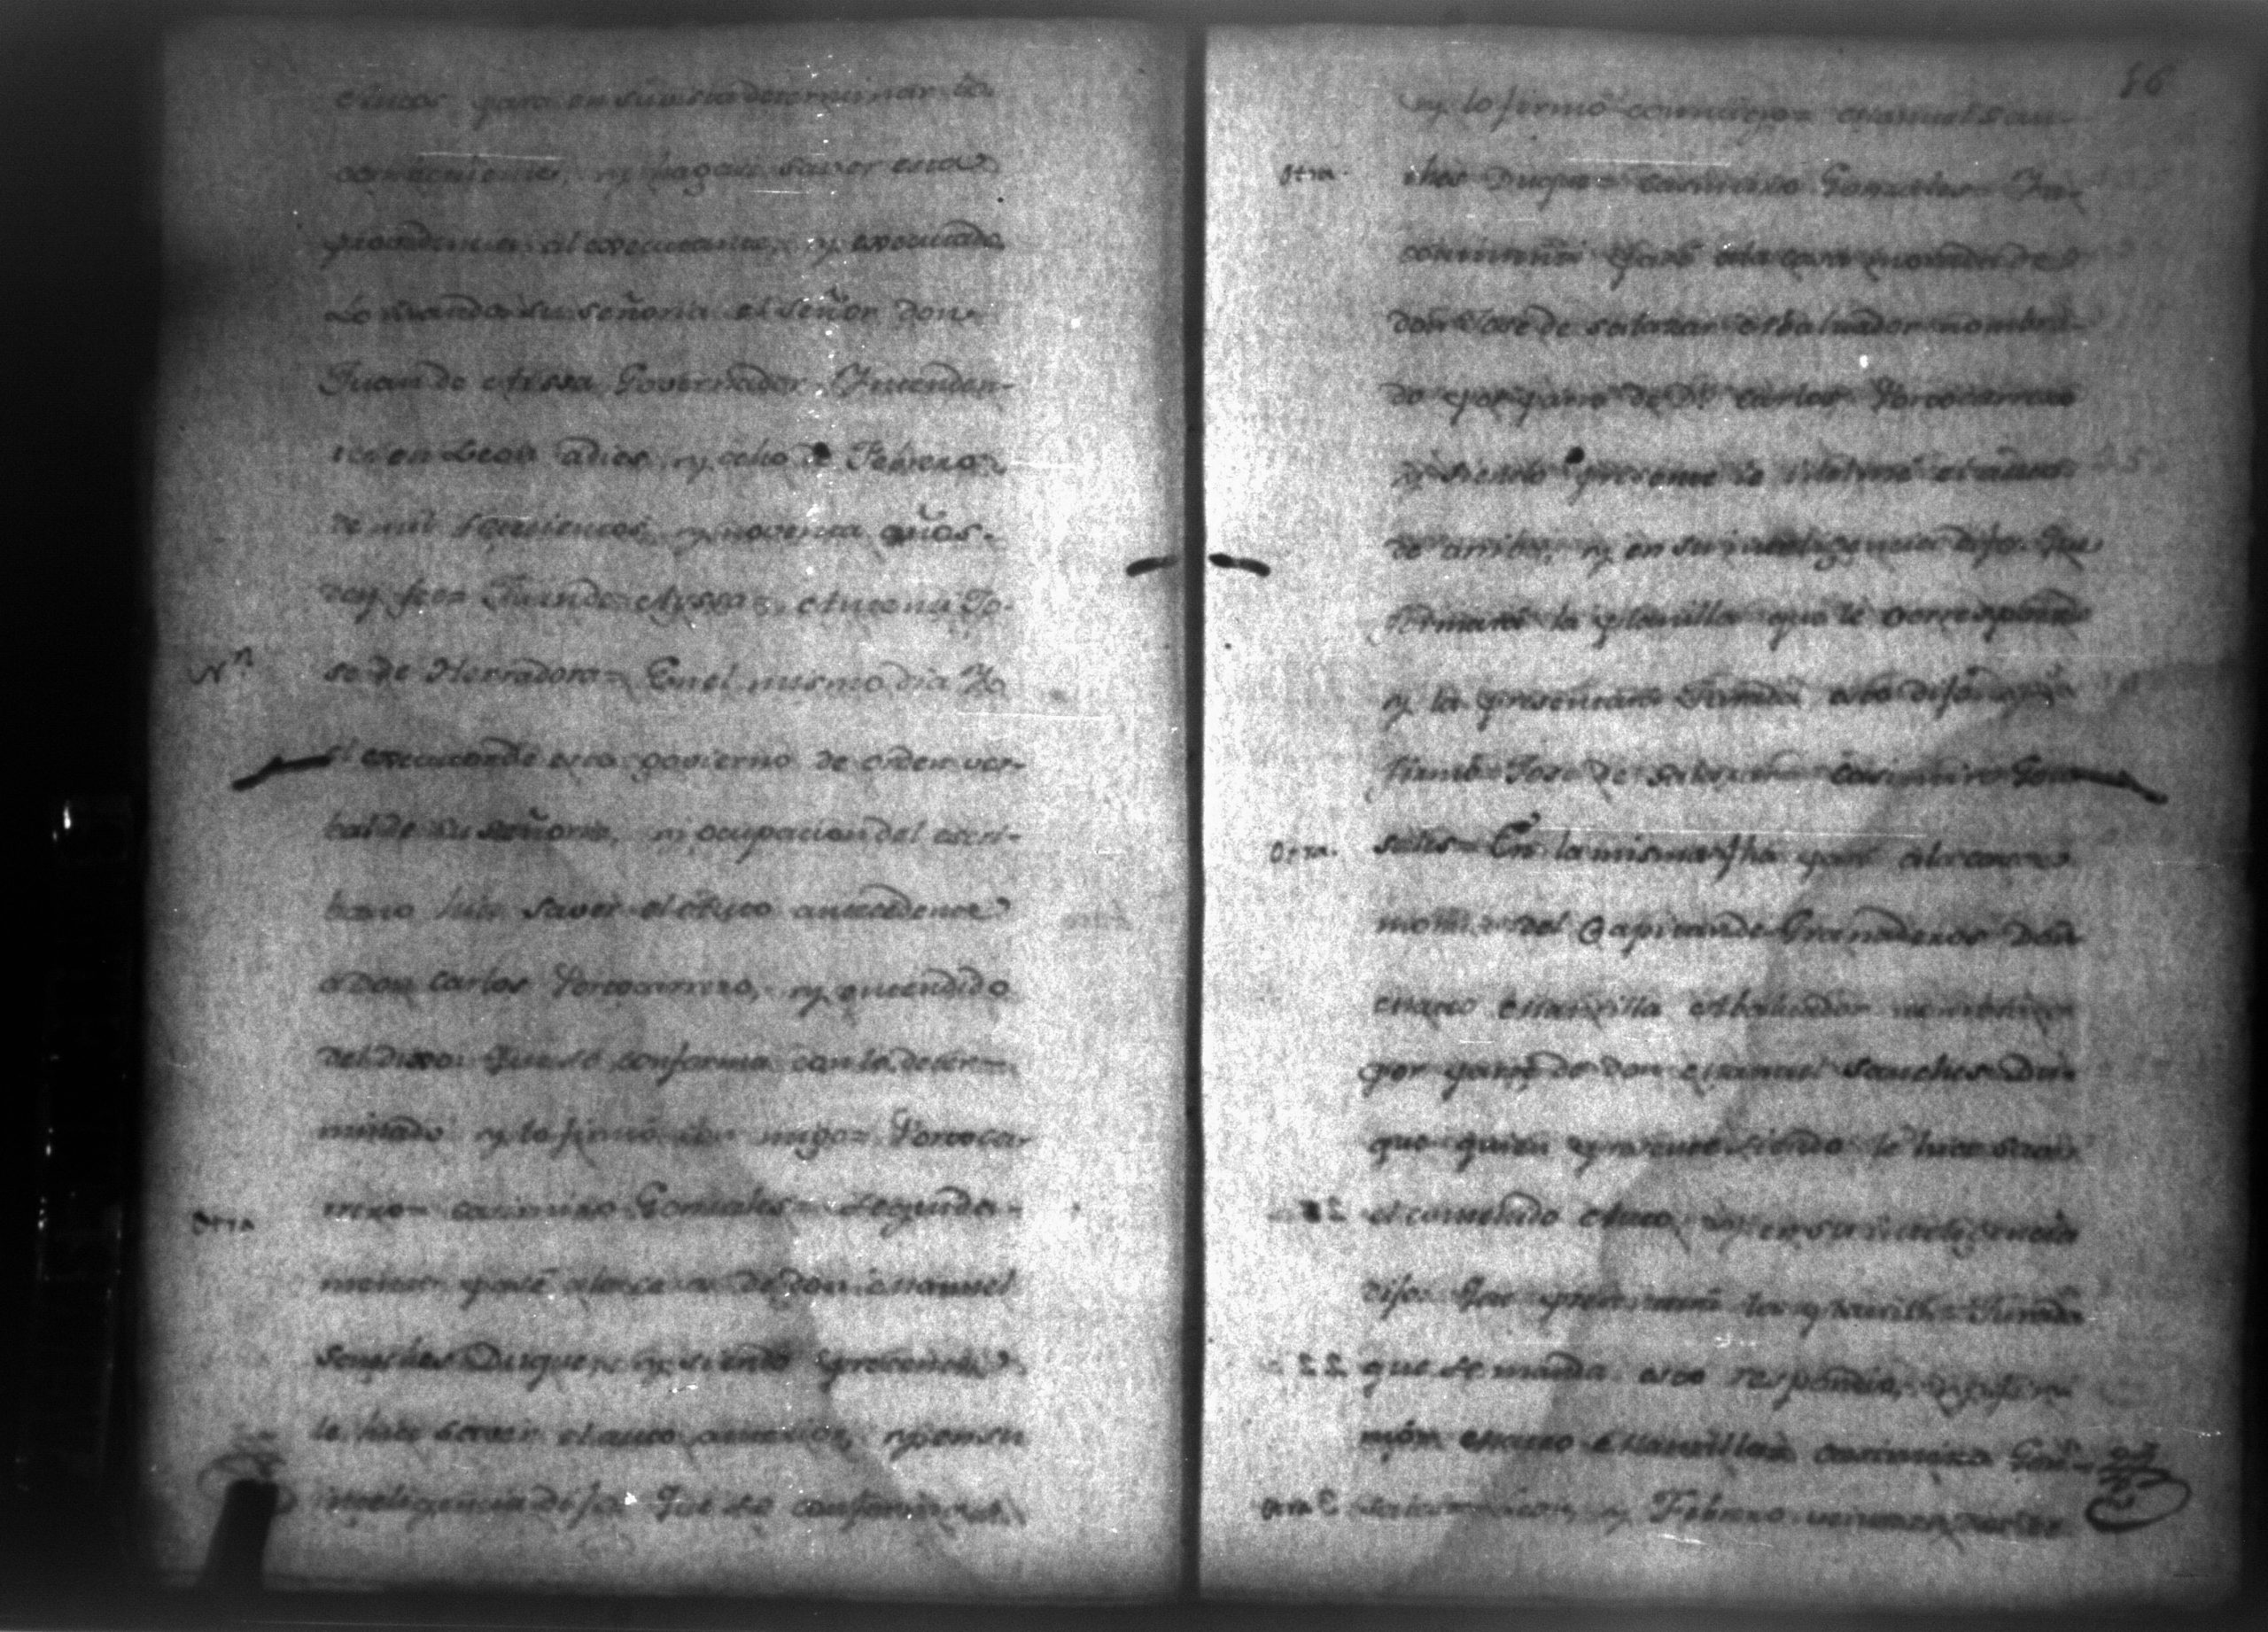 Autos para en su vista determinar lo
conveniente, y hagase saver esta
providencia al executante, y executado
Lo mandó su señoria el señor don
Juan de Ayssa Governador Intenden-
te en Leon a dies y ocho de Febrero
de mil setecientos y noventa años.
doy fee= Juan de Ayssa= Ante mi Jo-
N.n
se de Herradora= En el mismo dia Yo
el executor de este govierno de orden ver-
bal de su señoria, y ocupacion del escri-
bano hise saver el Auto antecedente
a Don Carlos Portocarrero, y entendido
del dixo: Que se conforma con lo deter-
minado y lo firmó con migo= Portoca-
Otra
rrero= Casimiro Gonsales= Seguida-
mente pasé a la casa de don Manuel
Sanches Duque, y siendo presente
le hise saver el auto anterior, y en su
inteligencia dijo: Que se conforma
16
y lo firmó conmigo= Manuel San-
Otra.
ches Duque= Casimiro Gonsales= In-
continenti pasé a la casa morada de
don Jose de Salazar Abaluador nombra-
do por parte de Dn Carlos Portocarrero
y siendo presente le el auto
de arriba, y en su inteligencia dijo: Que
formará la planilla que le corresponde
y la presentará Jurada esto dijo y
firmó= Jose de Salazar= Casimiro Gon
Otra.
sales= En la misma fha pasé a la casa
del Capitan de Granaderos Don
Mateo Mansilla Abaluador nombrado
por parte de don Manuel Sanches Du-
que quien presente siendo le hise saver
el auto, y en su inteligencia
dijo: Que presentará la planilla Jurada
que se manda esto respondio, y
Mateo Mansilla= Casimiro Gon-
Otra
sales= Leon, y Febrero